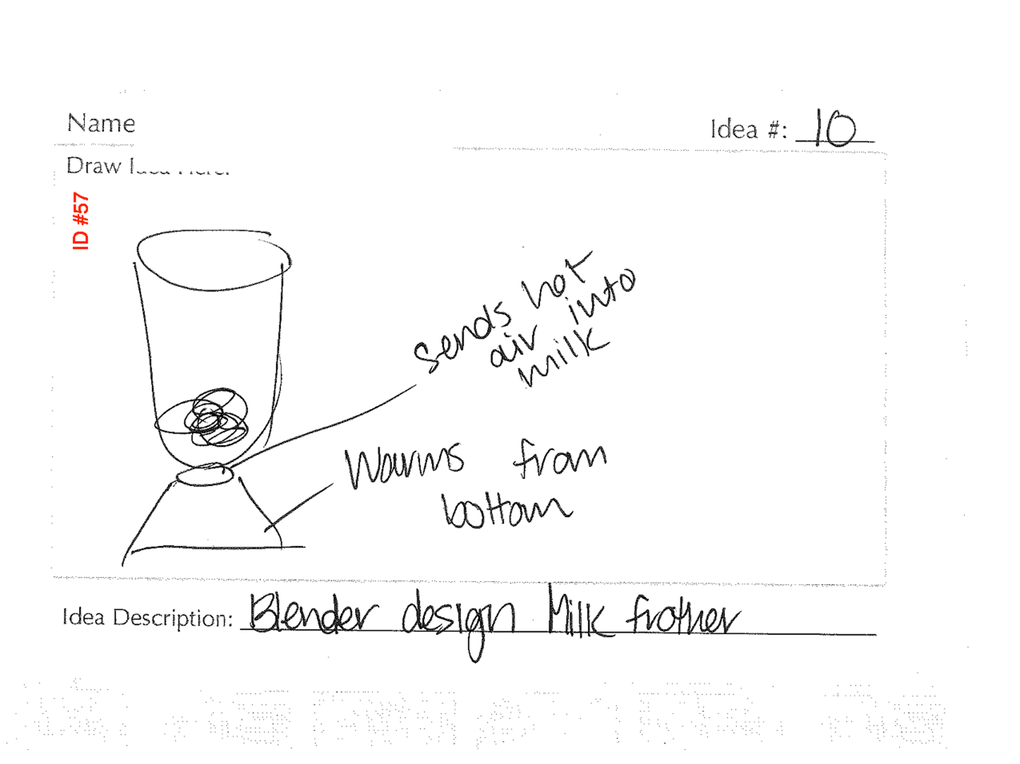 Name
Idea #: 10
Draw Idea Here:
ID #57
sends hot
air into
milk
Warms from
bottom
Idea Description: Blender design Milk frother